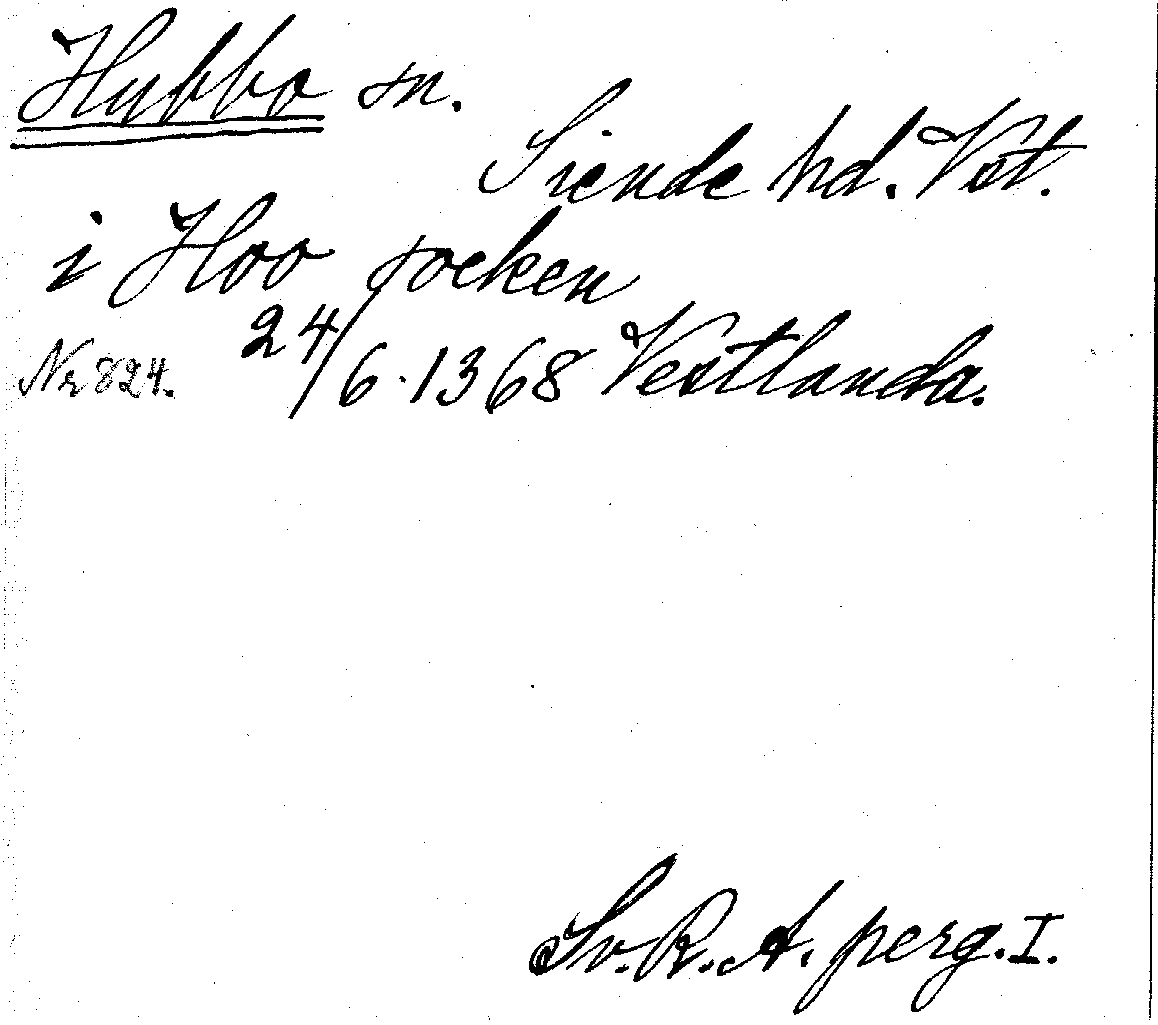 Hubbo sn.
Siende hd. Vst.
i Hoo socken
Nr 824. 24/6·1368 Vestlanda.
Sv. R. A. perg. I.